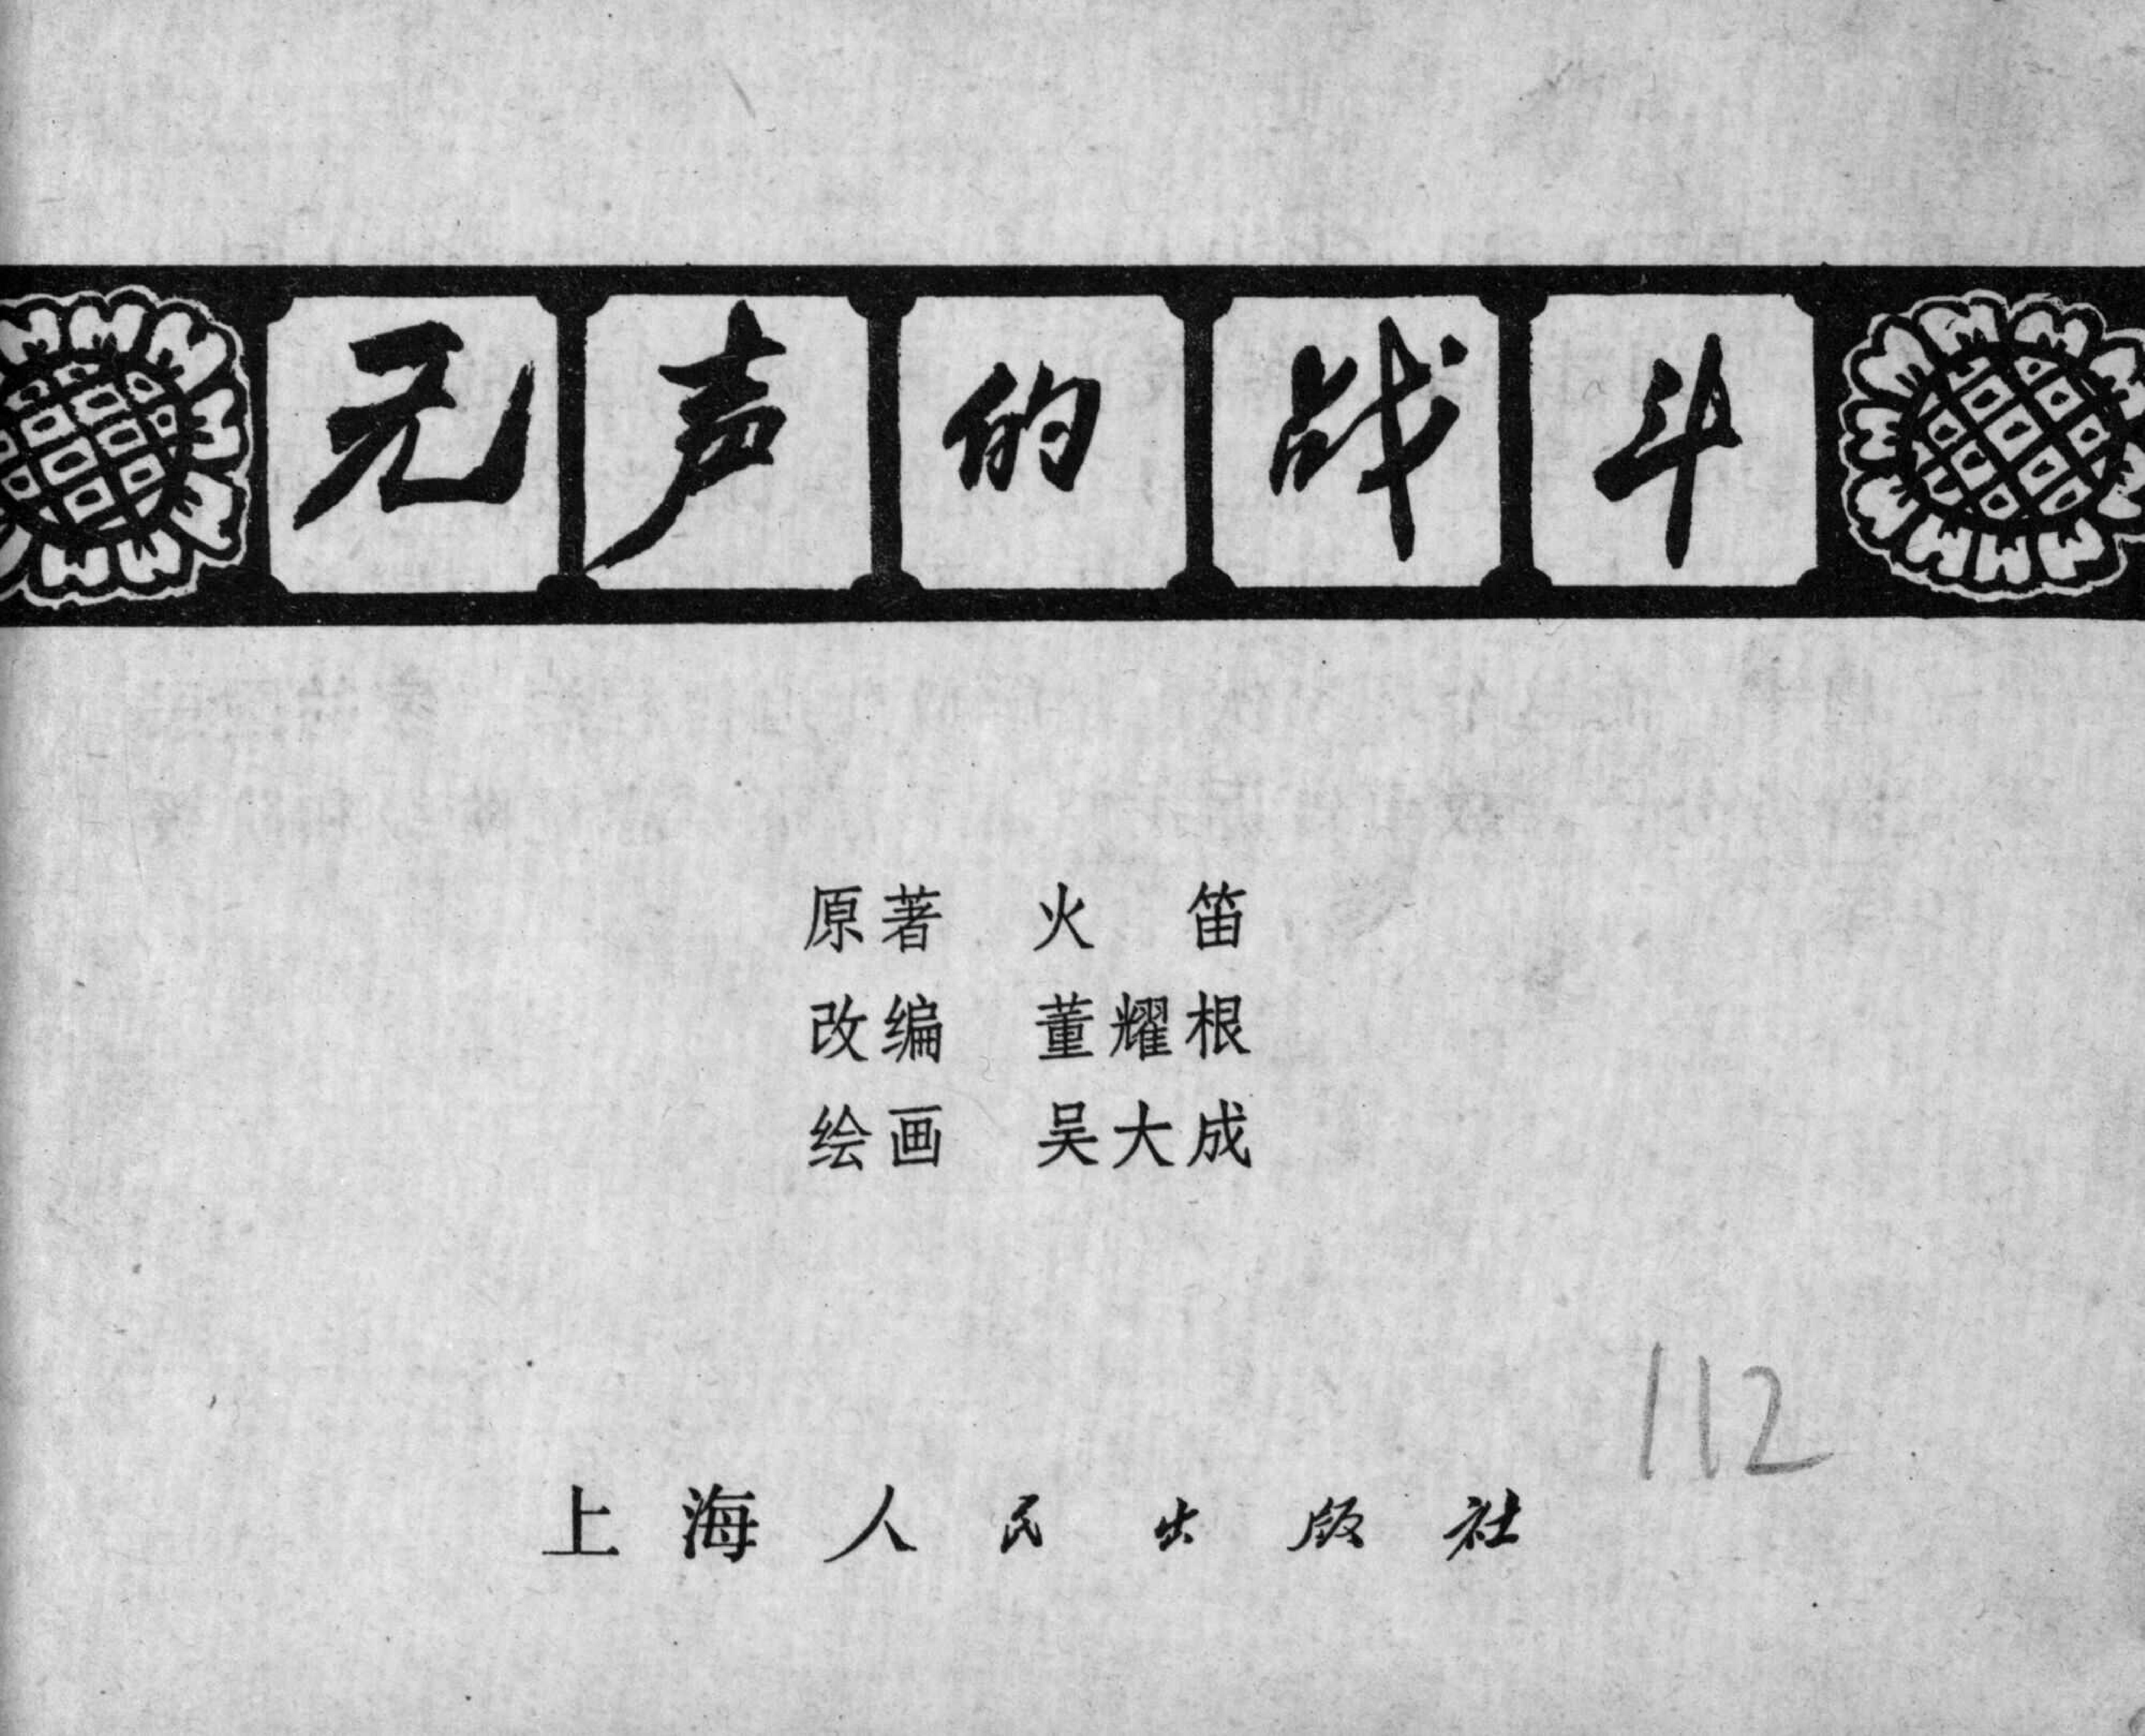 无声的战斗
原著 火 笛
改编 董耀根
绘画 吴大成
112
上海人民出版社